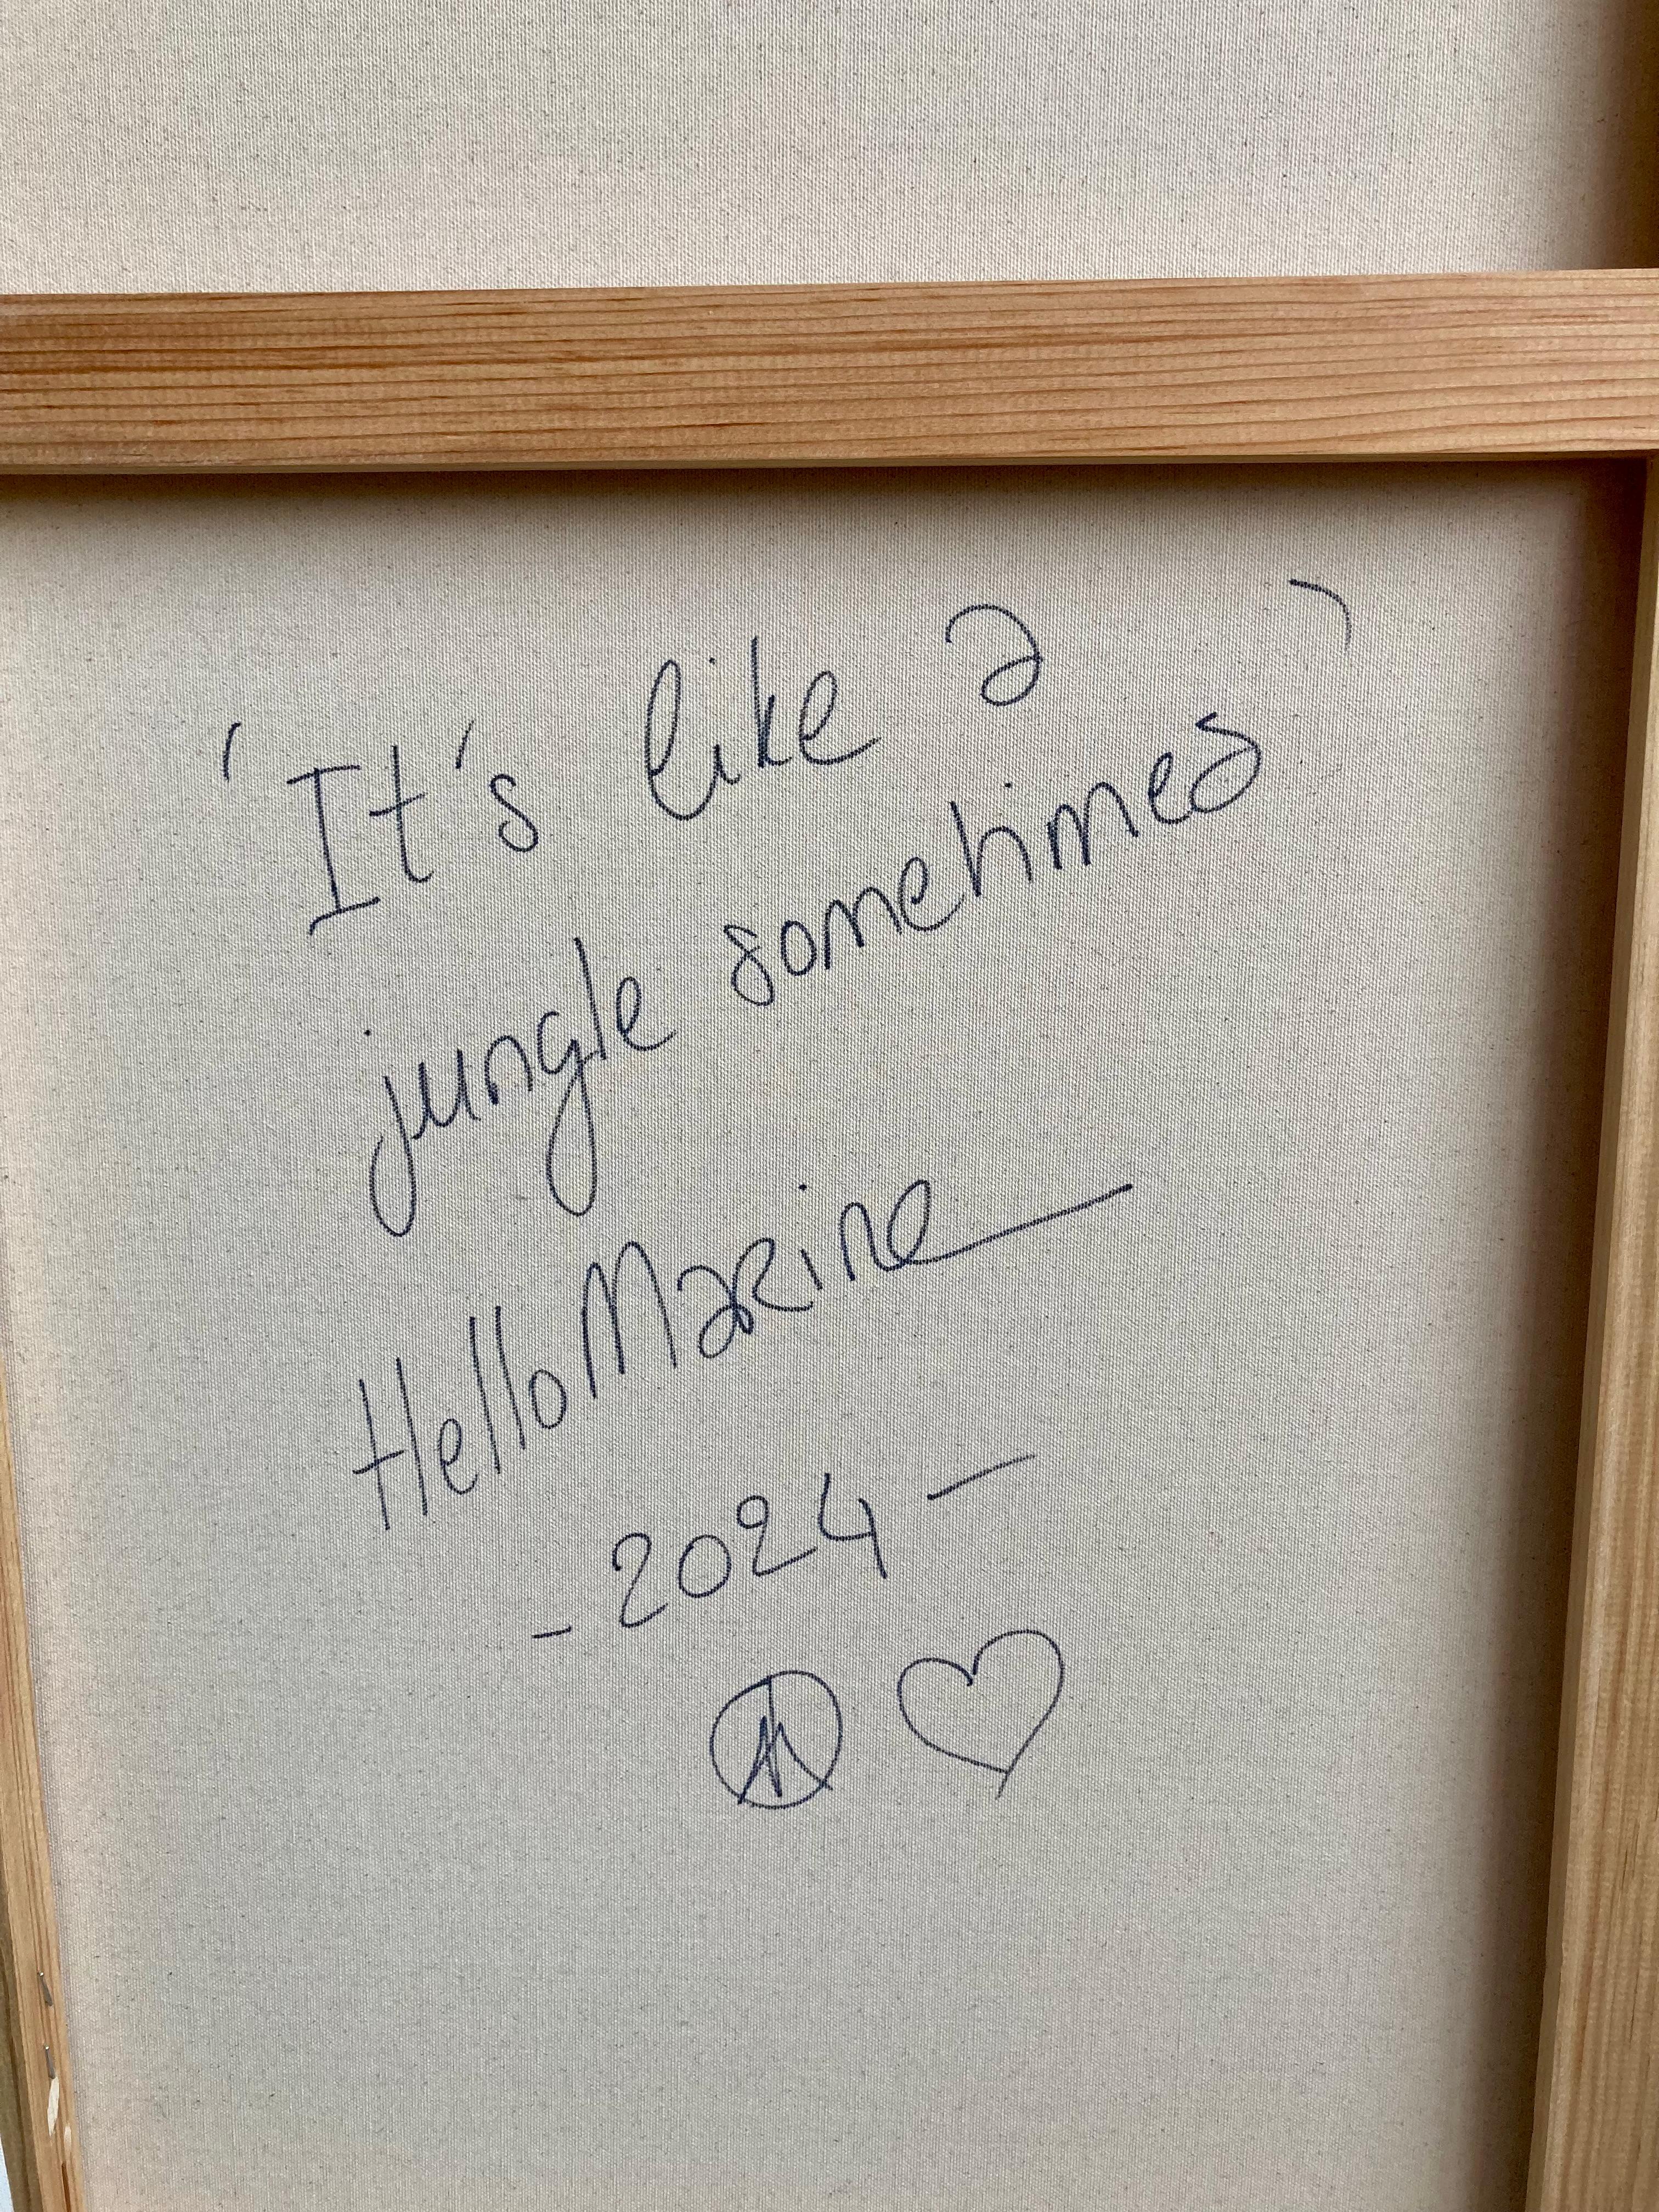 'It's like a
jungle sometimes'
HelloMarine
- 2024 -